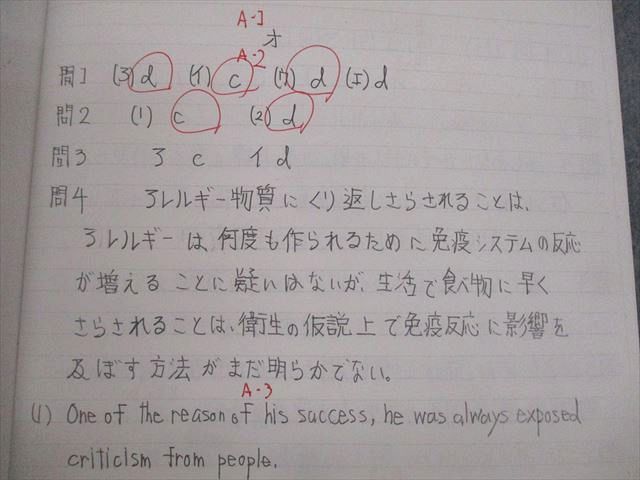 A-1
オ
A-2
問1 (ア) d (イ) c (ウ) d (エ) d
問2 (1) c (2) d
問3 ア c イ d
問4 アレルギー物質にくり返しさらされることは、
アレルギーは、何度も作られるために免疫システムの反応
が増えることに疑いはないが、生活で食べ物に早く
さらされることは、衛生の仮説上で免疫反応に影響を
及ぼす方法がまだ明らかでない。
A-3
(1) One of the reason of his success, he was always exposed
criticism from people.